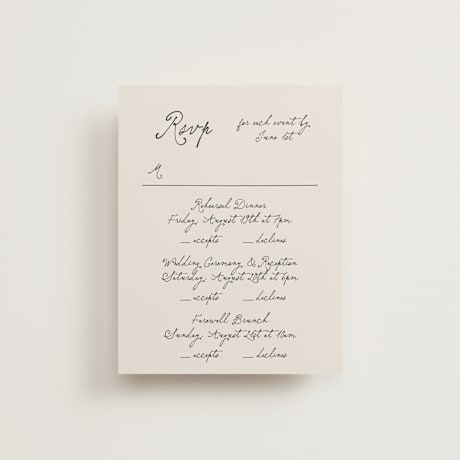 Rsvp
for each event by
June 1st
M
Rehearsal Dinner
Friday, August 19th at 7pm
__ accepts __ declines
Wedding Ceremony & Reception
Saturday, August 20th at 6pm
__ accepts __ declines
Farewell Brunch
Sunday, August 21st at 10am
__ accepts __ declines